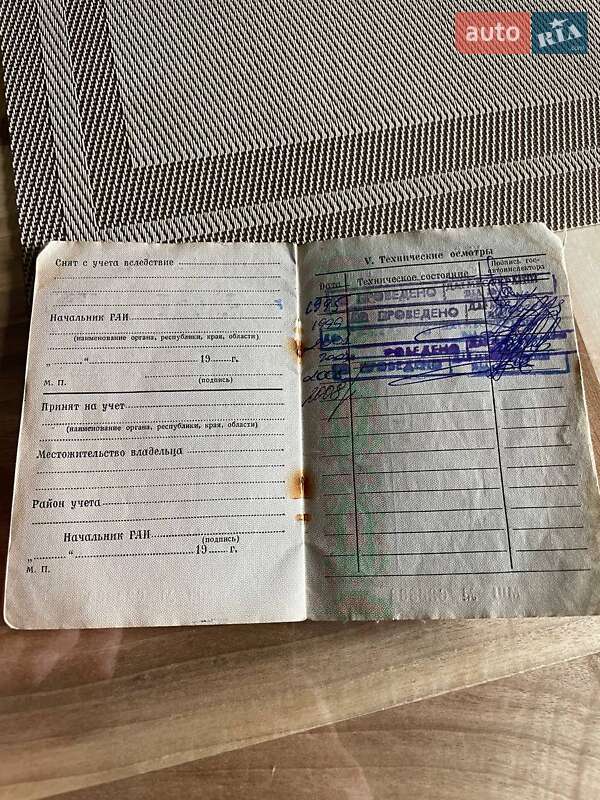 auto RIA.com
Снят с учета вследствие
Начальник ГАИ
(наименование органа, республики, края, области)
„ “ 19 г.
М. П. (подпись)
Принят на учет
(наименование органа, республики, края, области)
Местожительство владельца
Район учета
Начальник ГАИ
(подпись)
„ “ 19 г.
М. П.
V. Технические осмотры
Дата Техническое состояние Подпись гос-
автоинспектора
1995 ПРОВЕДЕНО
ПРОВЕДЕНО
ПРОВЕДЕНО